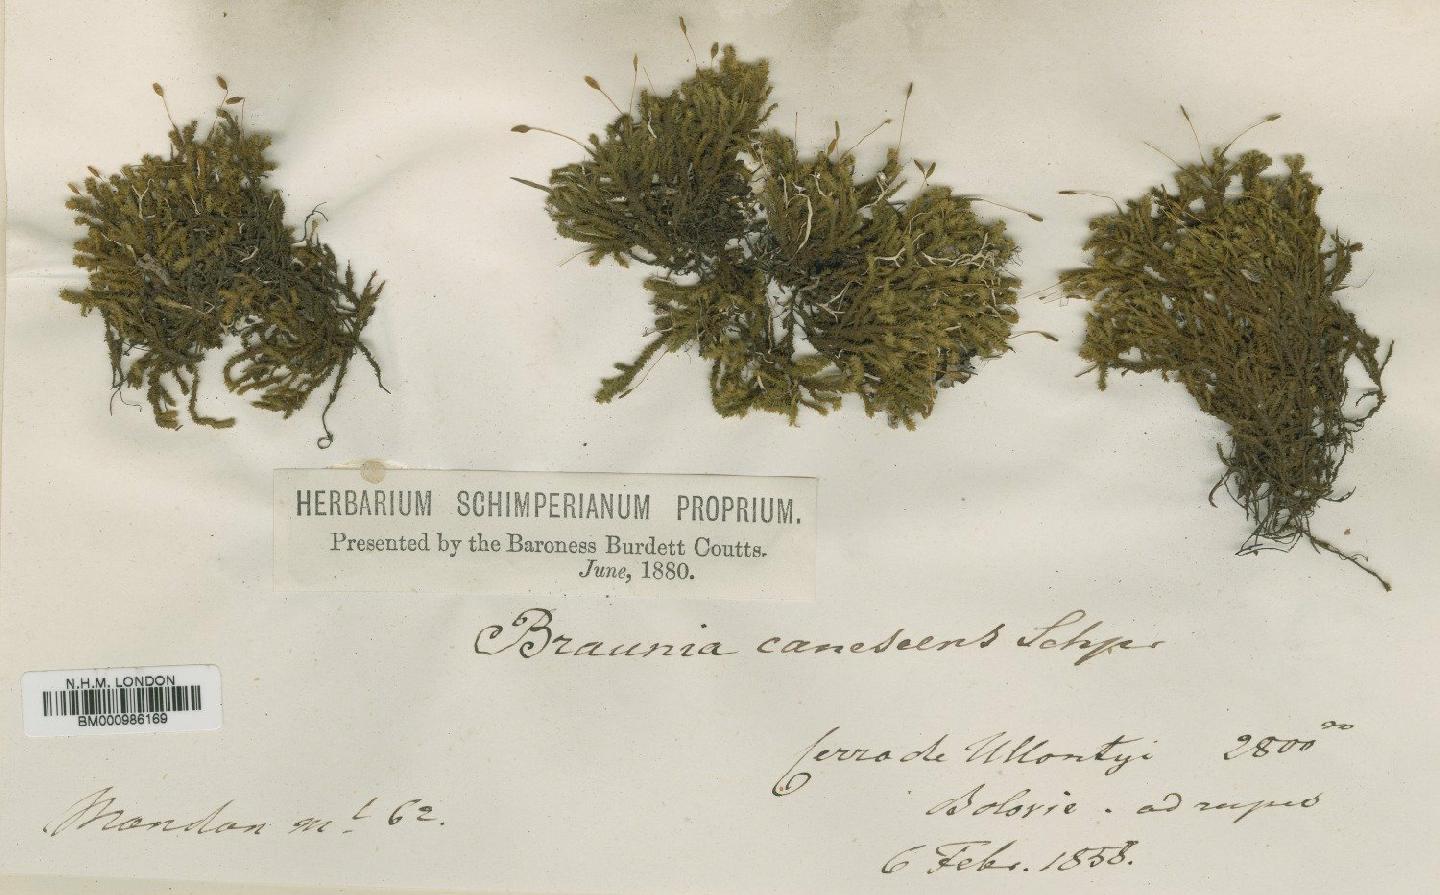 HERBARIUM SCHIMPERIANUM PROPRIUM.
Presented by the Baroness Burdett Coutts.
June, 1880.
Braunia canescens Schpr
N.H.M. LONDON
BM000986169
Cerro de Ullontyi 2800
Bolovie. ad rupes
Mandon 62.
6 Febr. 1858.